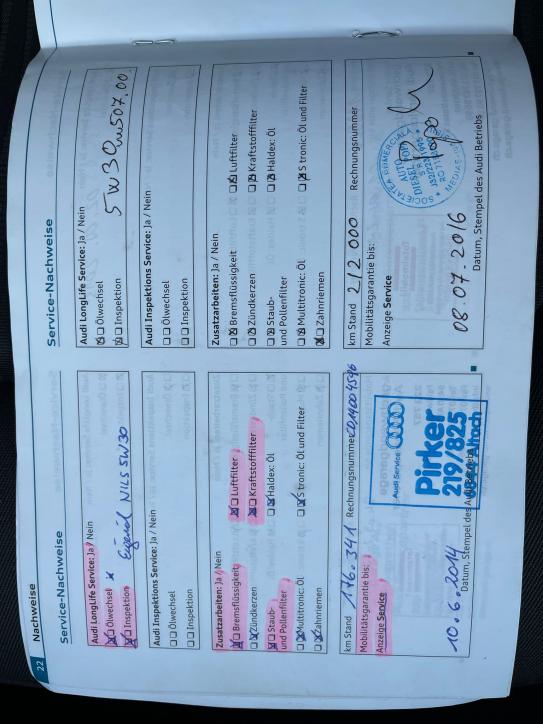 22 Nachweise
Service-Nachweise
Audi LongLife Service: Ja / Nein
Ölwechsel
Inspektion
NILS 5W30
Audi Inspektions Service: Ja / Nein
Ölwechsel
Inspektion
Zusatzarbeiten: Ja / Nein
Bremsflüssigkeit
Luftfilter
Zündkerzen
Kraftstofffilter
Staub-
und Pollenfilter
Haldex: Öl
Multitronic: Öl
S tronic: Öl und Filter
Zahnriemen
km Stand 176.341 Rechnungsnummer
Mobilitätsgarantie bis:
Anzeige Service
Audi Service
Pirker
219/825
10.6.2014
Datum, Stempel des Audi Betriebs
Service-Nachweise
Audi LongLife Service: Ja / Nein
Ölwechsel
Inspektion
5W30 507.00
Audi Inspektions Service: Ja / Nein
Ölwechsel
Inspektion
Zusatzarbeiten: Ja / Nein
Bremsflüssigkeit
Luftfilter
Zündkerzen
Kraftstofffilter
Staub-
und Pollenfilter
Haldex: Öl
Multitronic: Öl
S tronic: Öl und Filter
Zahnriemen
km Stand 212000 Rechnungsnummer
Mobilitätsgarantie bis:
Anzeige Service
08.07.2016
Datum, Stempel des Audi Betriebs